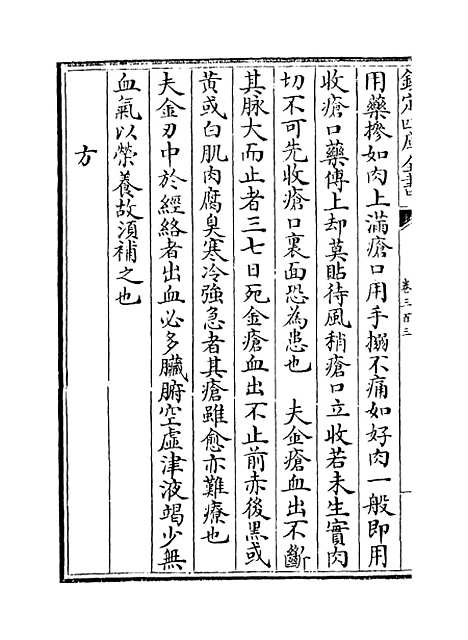 欽定四庫全書
卷三百三
用藥摻如肉上滿瘡口用手搦不痛如好肉一般即用
收瘡口藥傅上却莫貼待風稍瘡口立收若未生實肉
切不可先收瘡口裏面恐為患也　夫金瘡血出不斷
其脉大而止者三七日死金瘡血出不止前赤後黑或
黄或白肌肉腐臭寒冷強急者其瘡雖愈亦難療也
夫金刃中於經絡者出血必多臟腑空虛津液竭少無
血氣以榮養故須補之也
方